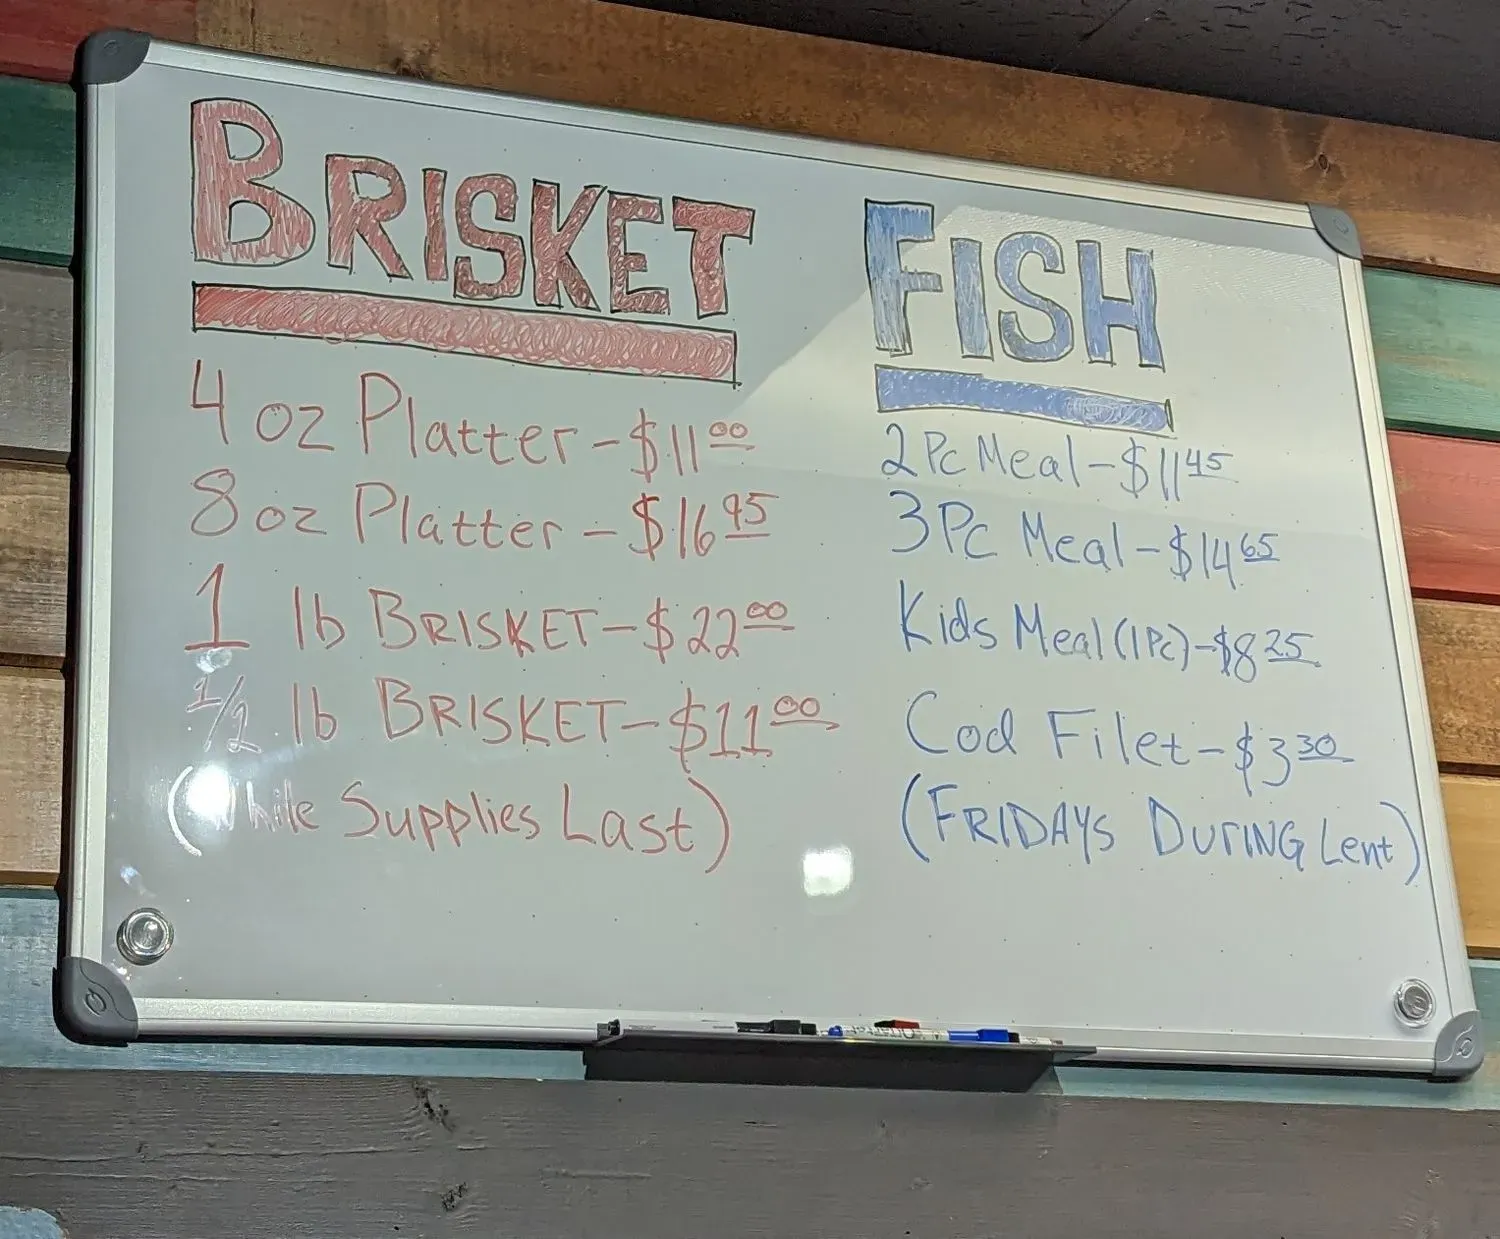 BRISKET
4 oz Platter - $11.00
8 oz Platter - $16.95
1 lb BRISKET - $22.00
1/2 lb BRISKET - $11.00
(While Supplies Last)
FISH
2 Pc Meal - $11.45
3 Pc Meal - $14.65
Kids Meal (1 Pc) - $8.25
Cod Filet - $3.30
(FRIDAYS DURING Lent)